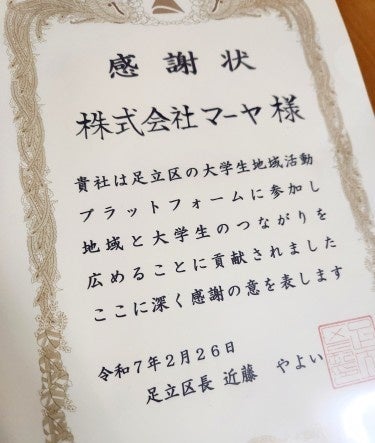 感謝状
株式会社マーヤ 様
貴社は足立区の大学生地域活動
プラットフォームに参加し
地域と大学生のつながりを
広めることに貢献されました
ここに深く感謝の意を表します
令和7年2月26日
足立区長 近藤 やよい